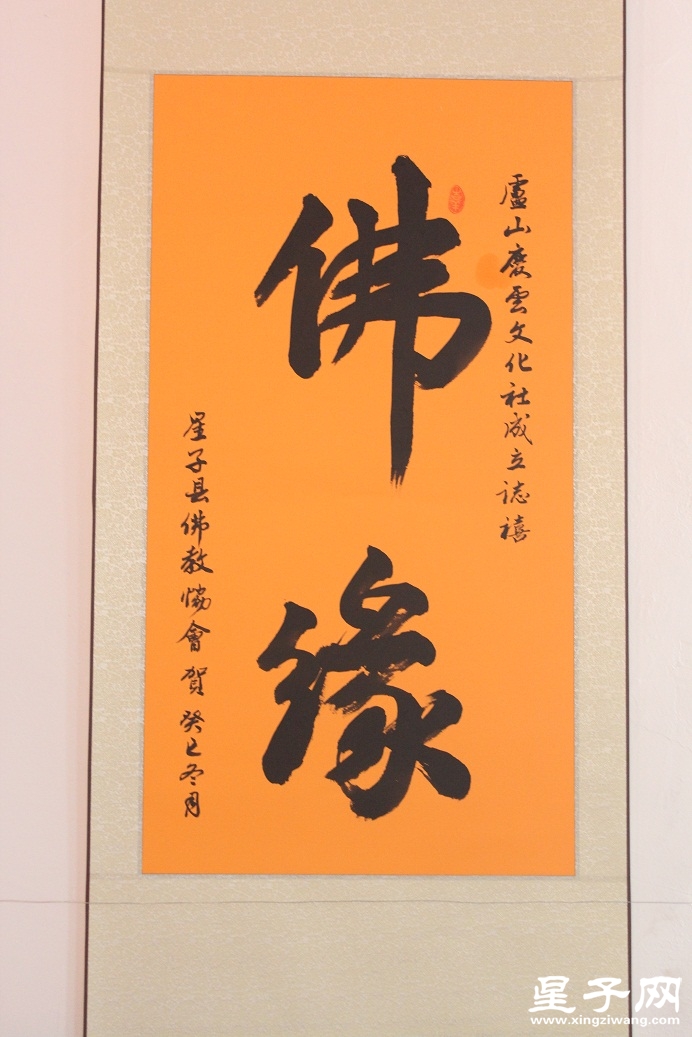 廬山慶雲文化社成立誌禧
佛緣
星子县佛教協會賀 癸巳冬月
星子网
www.xingziwang.com